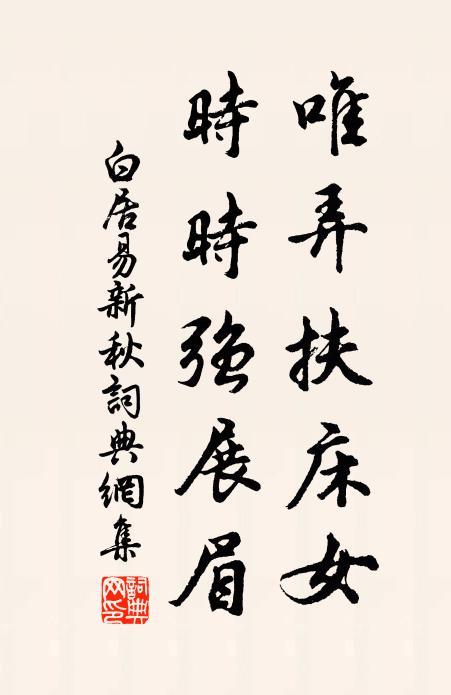 唯弄扶床女
時時強展眉
白居易新秋詞典網集
詞典
网印